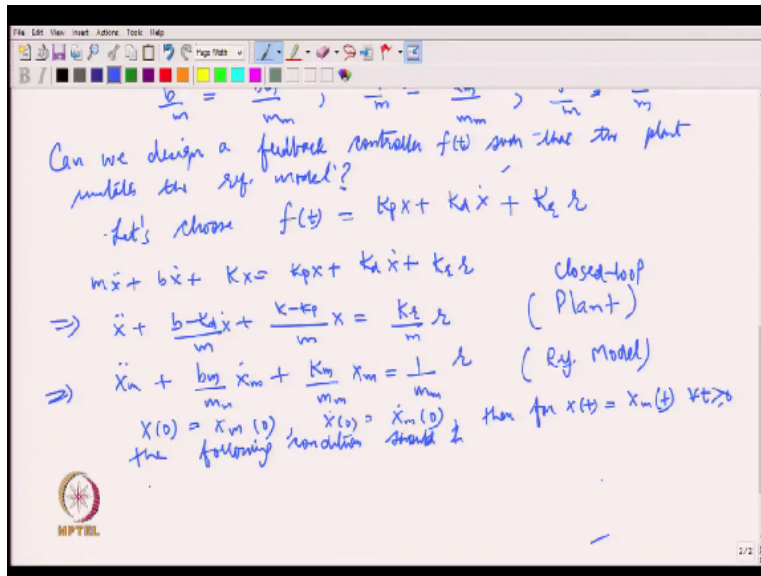 File Edit View Insert Actions Tools Help
Page Width
B I
b/m = /m_m , /m = /m_m , /m = /m
Can we design a feedback controller f(t) such that the plant
the ref. model?
Let's choose f(t) = kp x + kd ẋ + kr r
mẍ + bẋ + Kx = kp x + kd ẋ + kr r
closed-loop
⇒ ẍ + (b-kd)/m ẋ + (k-kp)/m x = kr/m r (Plant)
⇒ ẍm + bm/mm ẋm + Km/mm xm = 1/mm r (Ref. Model)
x(0) = xm(0), ẋ(0) = ẋm(0), then for x(t) = xm(t) ∀t≥0
the following condition should
NPTEL
2/2